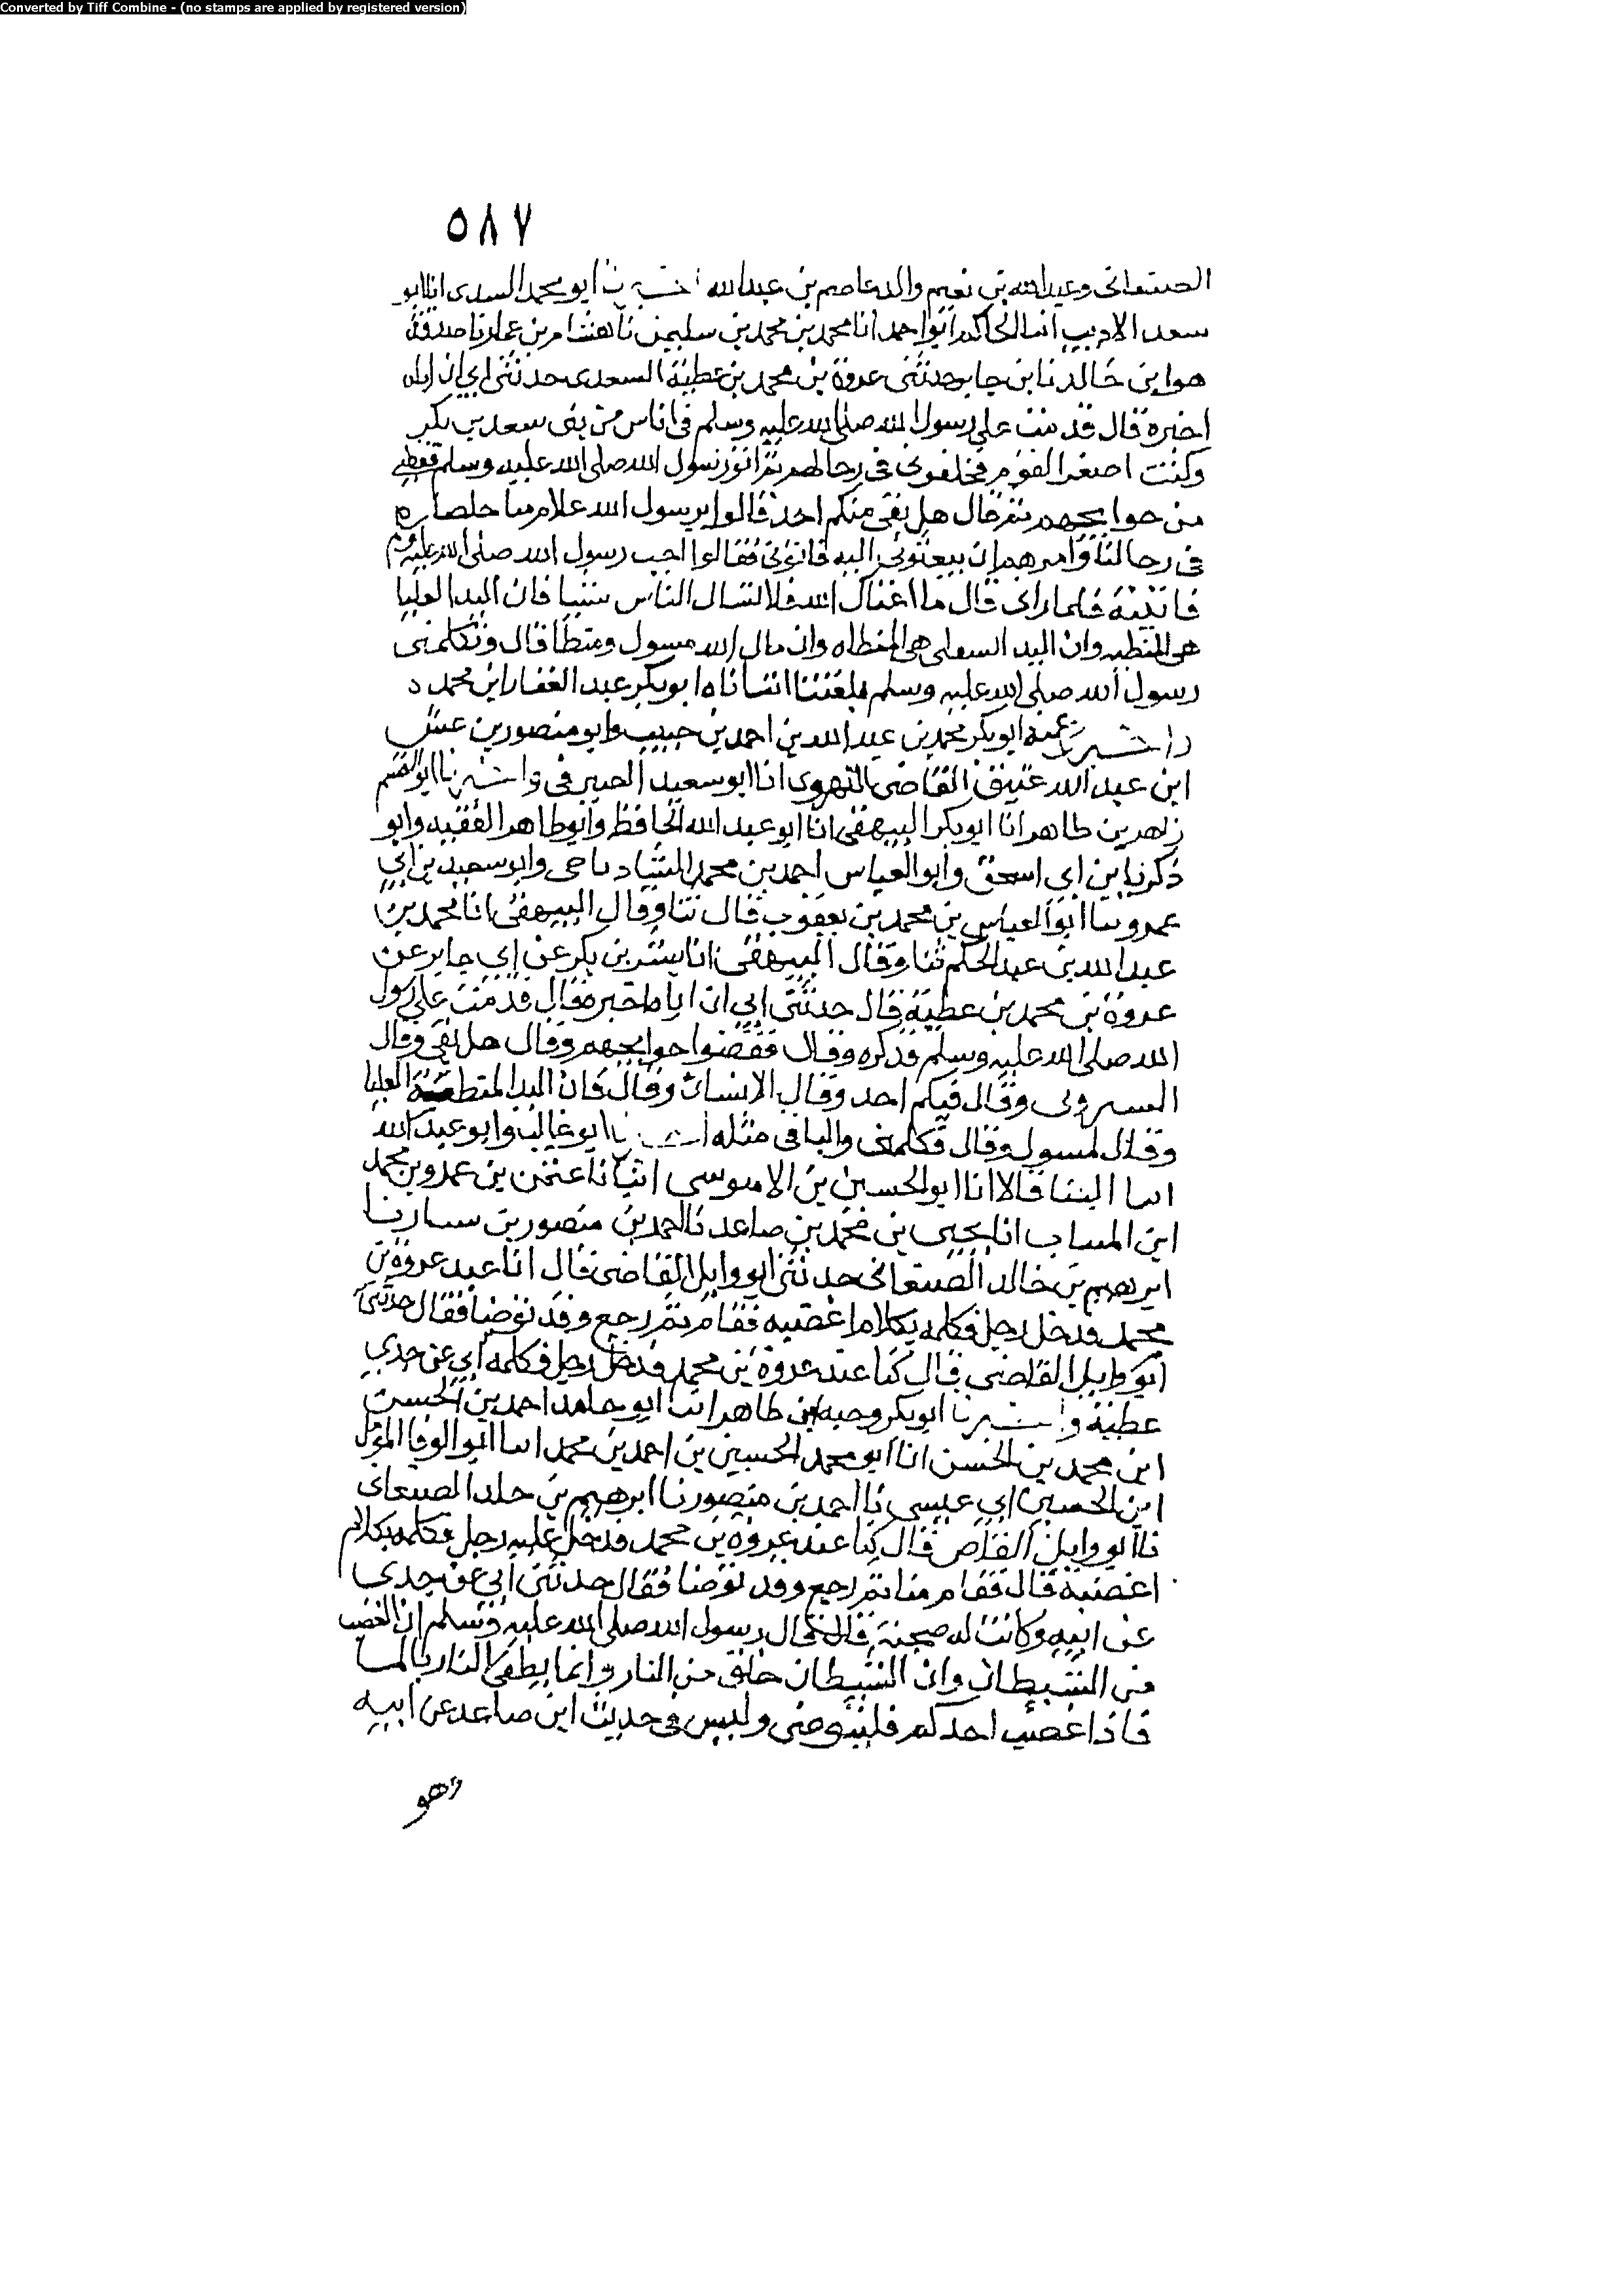 Converted by Tiff Combine - (no stamps are applied by registered version)
٥٨٧
الصنعانى وعبد الله بن نعيم والد عاصم بن عبد الله اخبرنا ابو محمد السيدى انا ابو
سعد الاديب انا الحاكم ابو احمد انا محمد بن محمد بن سليمن نا هشام بن عمار نا صدقة
هو ابن خالد نا ابن جابر حدثنى عروة بن محمد بن عطية السعدى حدثنى ابي ان اباه
اخبره قال قدمت على رسول الله صلى الله عليه وسلم فى اناس من بنى سعد بن بكر
وكنت اصغر القوم فخلفونى فى رحالهم ثم اتوا رسول الله صلى الله عليه وسلم فقضى
من حوايجهم ثم قال هل بقى منكم احد قالوا يرسول الله غلام منا خلفناه
فى رحالنا وامرهم ان يبعثونى اليه فاتونى فقالوا اجب رسول الله صلى الله عليه وسلم
فاتيته فلما رانى قال ما اغناك الله فلا تسال الناس شيا فان اليد العليا
هى المنطيه وان اليد السفلى هى المنطاه وان مال الله مسول ومنطا قال وتكلمنى
رسول الله صلى الله عليه وسلم بلغتنا انبأناه ابو بكر عبد الغفار ابن محمد د
واخبرنا عنه ابو بكر محمد بن عبد الله بن احمد بن حبيب وابو منصور بن
ابن عبد الله عتيق القاضى الهروى انا ابو سعيد الصيرفى واخبرنا ابو القسم
زاهر بن طاهر انا ابو بكر البيهقى انا ابو عبد الله الحافظ وابو طاهر الفقيه وابو
زكريا بن ابي اسحق وابو العباس احمد بن محمد الشاد ياخى وابو سعيد بن ابي
عمرو نا ابو العباس بن محمد بن يعقوب قال نا وقال البيهقى انا محمد بن
عبد الله بن عبد الحكم ثنا وقال البيهقى انا بشر بن بكر عن ابي جابر عن
عروة بن محمد بن عطية قال حدثنى ابي ان اباه اخبره قال قدمت على رسول
الله صلى الله عليه وسلم فذكره وقال فقضوا حوايجهم وقال هل بقى وقال
وقال فيكم احد وقال الانسان وقال فان اليد المنطية العليا
وقال لمسول وقال فكلمنى والباقى مثله اخبرنا ابو غالب وابو عبد الله
انبا البنا قالا انا ابو الحسين بن الابنوسى انبانا عثمن بن عمرو بن محمد
ابن المنتاب انا يحيى بن محمد بن صاعد نا احمد بن منصور بن سيار نا
ابرهيم بن خالد الصنعانى حدثنى ابو وايل القاضى قال انا عبد عروة بن
محمد فدخل رجل فكلمه بكلام اغضبه فقام ثم رجع وقد توضا فقال حدثنى
ابو وايل القاضى قال كنا عند عروة بن محمد فدخل رجل فكلمه ابي عن جدي
عطية واخبرنا ابو بكر وجيه ابن طاهر انا ابو حامد احمد بن الحسن
ابن محمد بن الحسن انا ابو محمد الحسين بن احمد بن محمد انا ابو الوفا المؤمل
ابن الحسين ابي عيسى نا احمد بن منصور نا ابرهيم بن خلد الصنعاى
نا ابو وايل القاص قال كنا عند عروة بن محمد فدخل عليه رجل فكلمه بكلام
اغضبه قال فقام منا ثم رجع وقد توضا فقال حدثنى ابي عن جدى
عن ابيه وكانت له صحبة قال قال رسول الله صلى الله عليه وسلم ان الغضب
من الشيطان وان الشيطان خلق من النار وانما يطفى النار بالما
فاذا غضب احدكم فليتوضى وليس فى حديث ابن صاعد عن ابيه
وهو